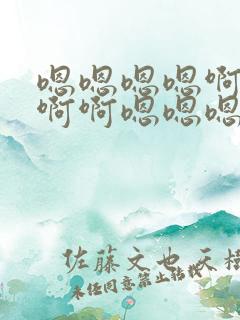 嗯嗯嗯嗯啊
啊啊嗯嗯嗯
佐藤文也 天樹
未经同意禁止转载